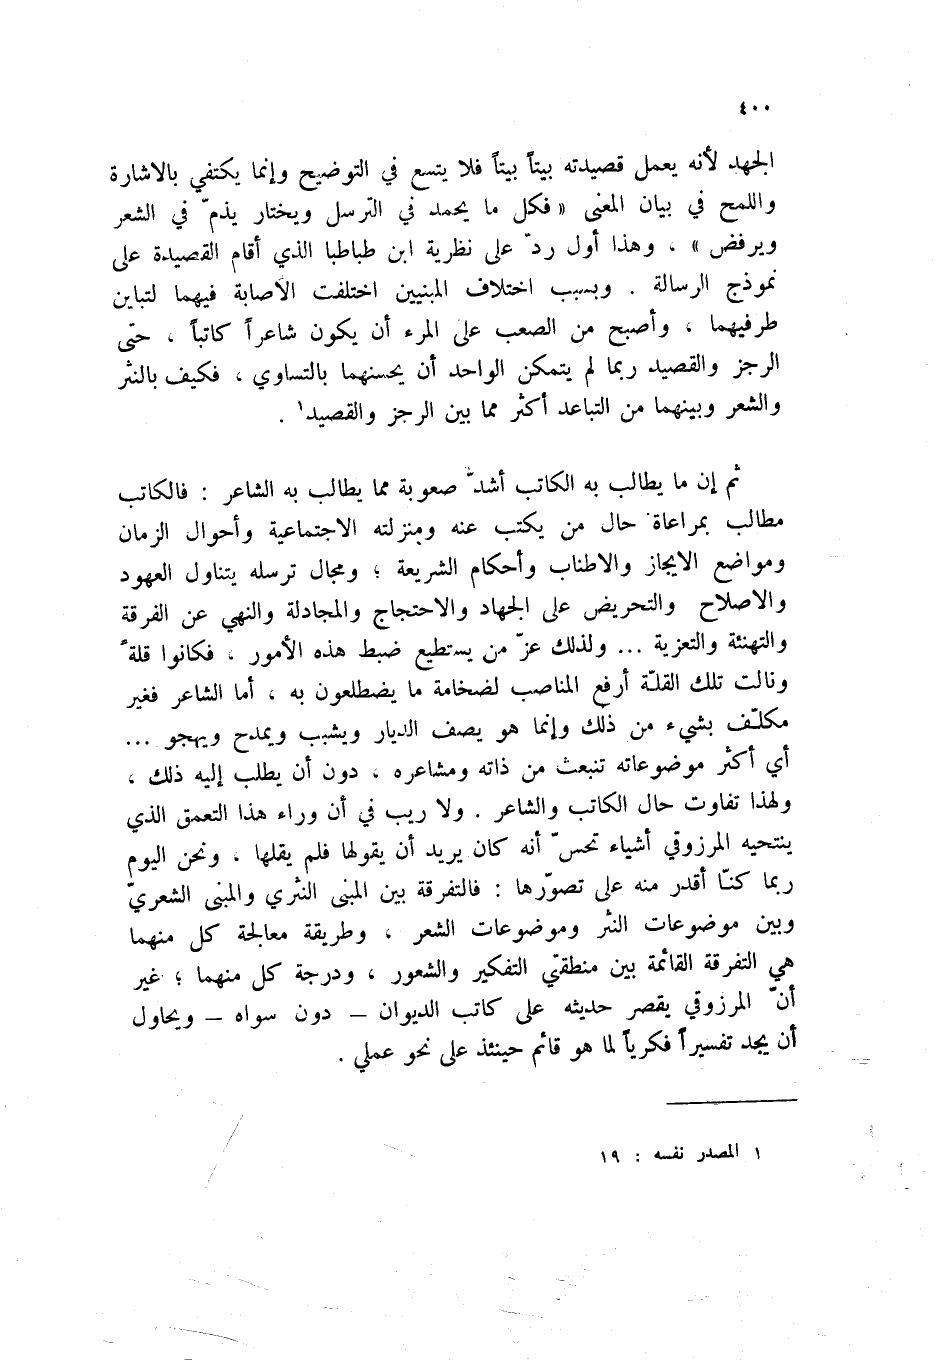 ٤٠٠
الجهد لأنه يعمل قصيدته بيتاً بيتاً فلا يتسع في التوضيح وإنما يكتفي بالاشارة
واللمح في بيان المعنى « فكل ما يحمد في الترسل ويختار يذمّ في الشعر
ويرفض » ، وهذا أول ردّ على نظرية ابن طباطبا الذي أقام القصيدة على
نموذج الرسالة . وبسبب اختلاف المبنيين اختلفت الأصابة فيهما لتباين
طرفيهما ، وأصبح من الصعب على المرء أن يكون شاعراً كاتباً ، حتى
الرجز والقصيد ربما لم يتمكن الواحد أن يحسنهما بالتساوي ، فكيف بالنثر
والشعر وبينهما من التباعد أكثر مما بين الرجز والقصيد١ .
ثم إن ما يطالب به الكاتب أشدّ صعوبة مما يطالب به الشاعر : فالكاتب
مطالب بمراعاة حال من يكتب عنه ومنزلته الاجتماعية وأحوال الزمان
ومواضع الايجاز والاطناب وأحكام الشريعة ؛ ومجال ترسله يتناول العهود
والاصلاح والتحريض على الجهاد والاحتجاج والمجادلة والنهي عن الفرقة
والتهنئة والتعزية ... ولذلك عزّ من يستطيع ضبط هذه الأمور ، فكانوا قلةً
ونالت تلك القلّة أرفع المناصب لضخامة ما يضطلعون به ، أما الشاعر فغير
مكلّف بشيء من ذلك وإنما هو يصف الديار ويشبب ويمدح ويهجو ...
أي أكثر موضوعاته تنبعث من ذاته ومشاعره ، دون أن يطلب إليه ذلك ،
ولهذا تفاوت حال الكاتب والشاعر . ولا ريب في أن وراء هذا التعمق الذي
ينتحيه المرزوقي أشياء تحسّ أنه كان يريد أن يقولها فلم يقلها ، ونحن اليوم
ربما كنّا أقدر منه على تصوّرها : فالتفرقة بين المبنى النثري والمبنى الشعريّ
وبين موضوعات النثر وموضوعات الشعر ، وطريقة معالجة كل منهما
هي التفرقة القائمة بين منطقتي التفكير والشعور ، ودرجة كل منهما ؛ غير
أنّ المرزوقي يقصر حديثه على كاتب الديوان – دون سواه – ويحاول
أن يجد تفسيراً فكرياً لما هو قائم حينئذ على نحو عملي .
١ المصدر نفسه : ١٩